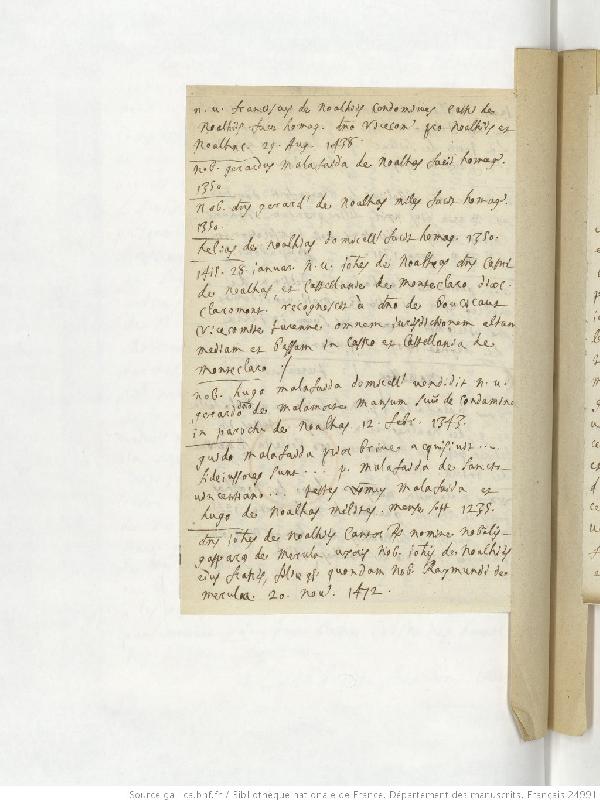 n. v. franciscus de Noalhiis condominus castri de
Noalhiis facit homag. dno vicecom. pro Noalhiis et
Noalhac. 29. Aug. 1438
nob. gerardus Malafaida de Noalhas facit homag.
1350.
Nob. dns gerard. de Noalhas miles facit homag.
1350.
helias de Noalhas domicell. facit homag. 1350.
1415. 28. januar. N. v. johes de Noalhas dns castri
de Noalhas et castellaniae de monteclaro dioc.
claromont. recognoscit à dno de Boucicaut
vicecomite Turenne omnem jurisdictionem altam
mediam et bassam in castro et castellania de
monteclaro
nob. hugo malafaida domicell. vendidit n. v.
gerardo dno de malamorte mansum suum de condamina
in parochia de Noalhas 12. febr. 1343.
guido malafaida prior brivae acquisivit ...
fideiussores sunt ... p. malafaida de sancto
vincentiano ... testes malafaida et
hugo de Noalhas milites. mense sept. 1235.
dns johes de Noalhiis cantor nomine nobilis
gasparae de mercula uxoris nob. johis de Noalhiis
eius fratris, filiae quondam nob. Raymundi de
mercula. 20. nov. 1472.
Source gallica.bnf.fr / Bibliothèque nationale de France. Département des manuscrits. Français 24991